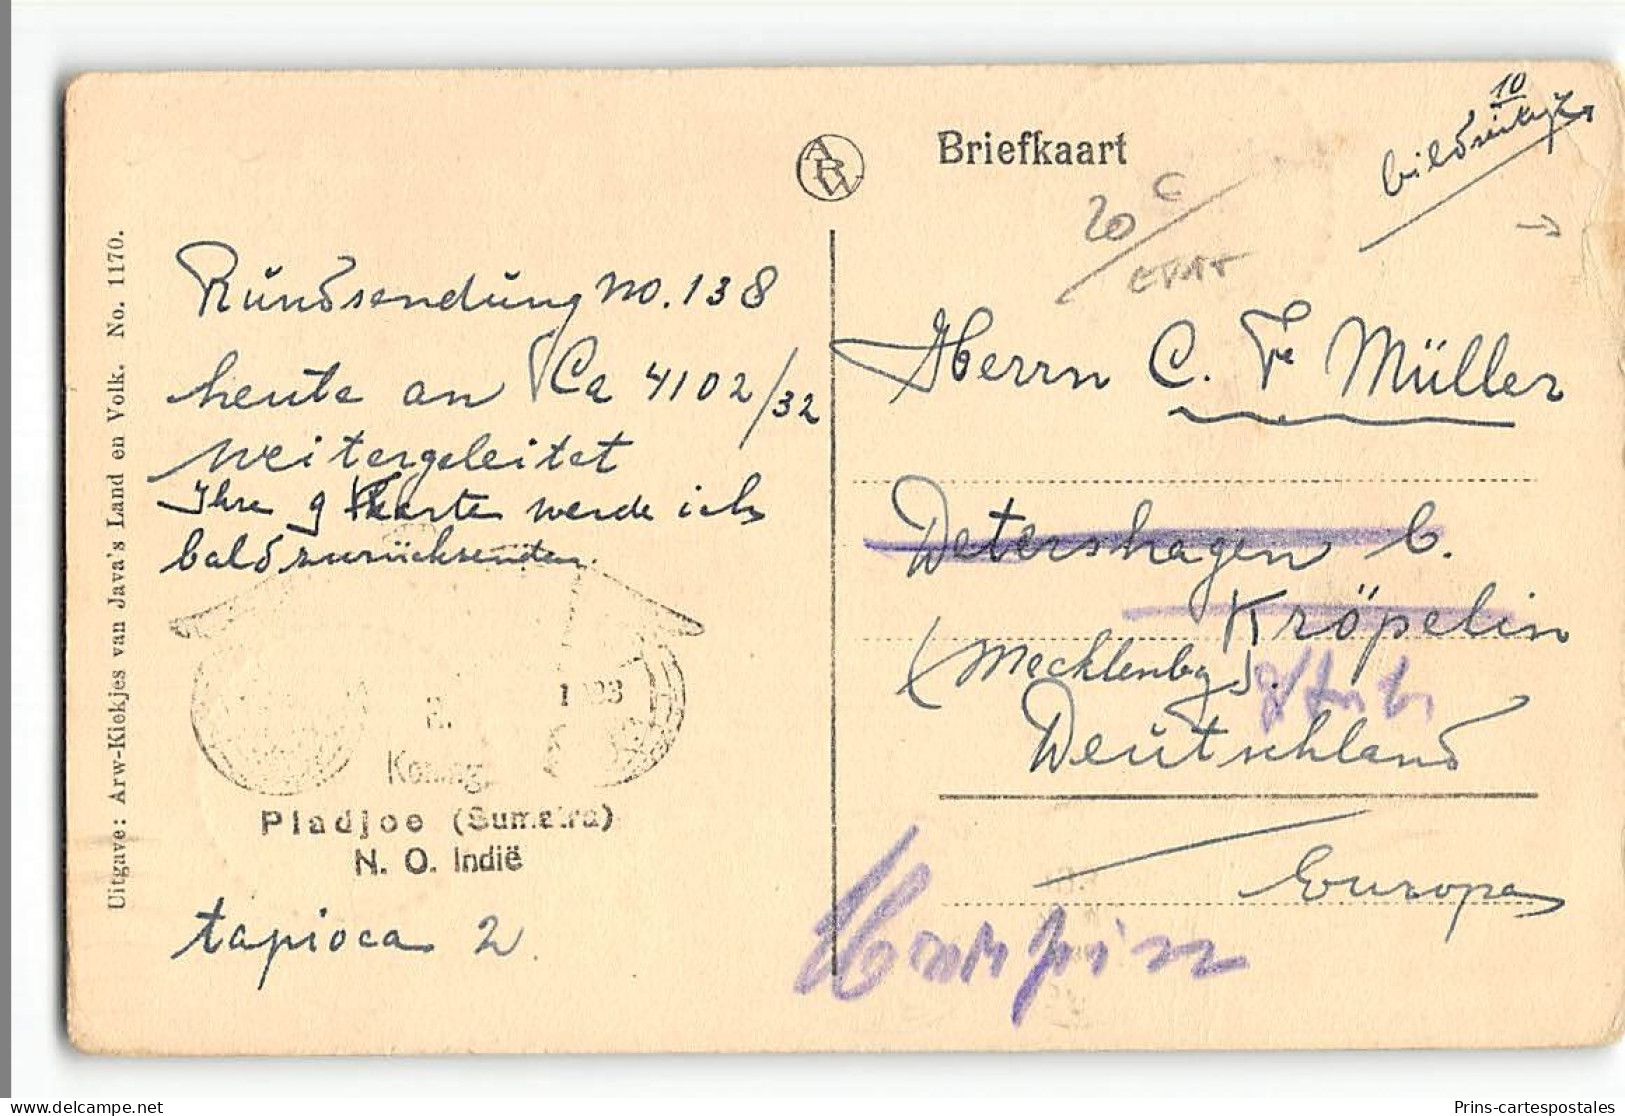 Uitgave: Arw-Kiekjes van Java's Land en Volk. No. 1170.
Rundsendung No. 138
heute an Ca 4102/32
weitergeleitet
Ihre g Karte werde ich
bald zurücksenden.
1 23
Koning
Pladjoe (Sumatra)
N. O. Indië
tapioca 2
ARW
Briefkaart
10
bildseitig
20 c
Herrn C. Fr Müller
Detershagen b.
Kröpelin
(Mecklenbg).
Deutschland
Europa
Prins-cartespostales